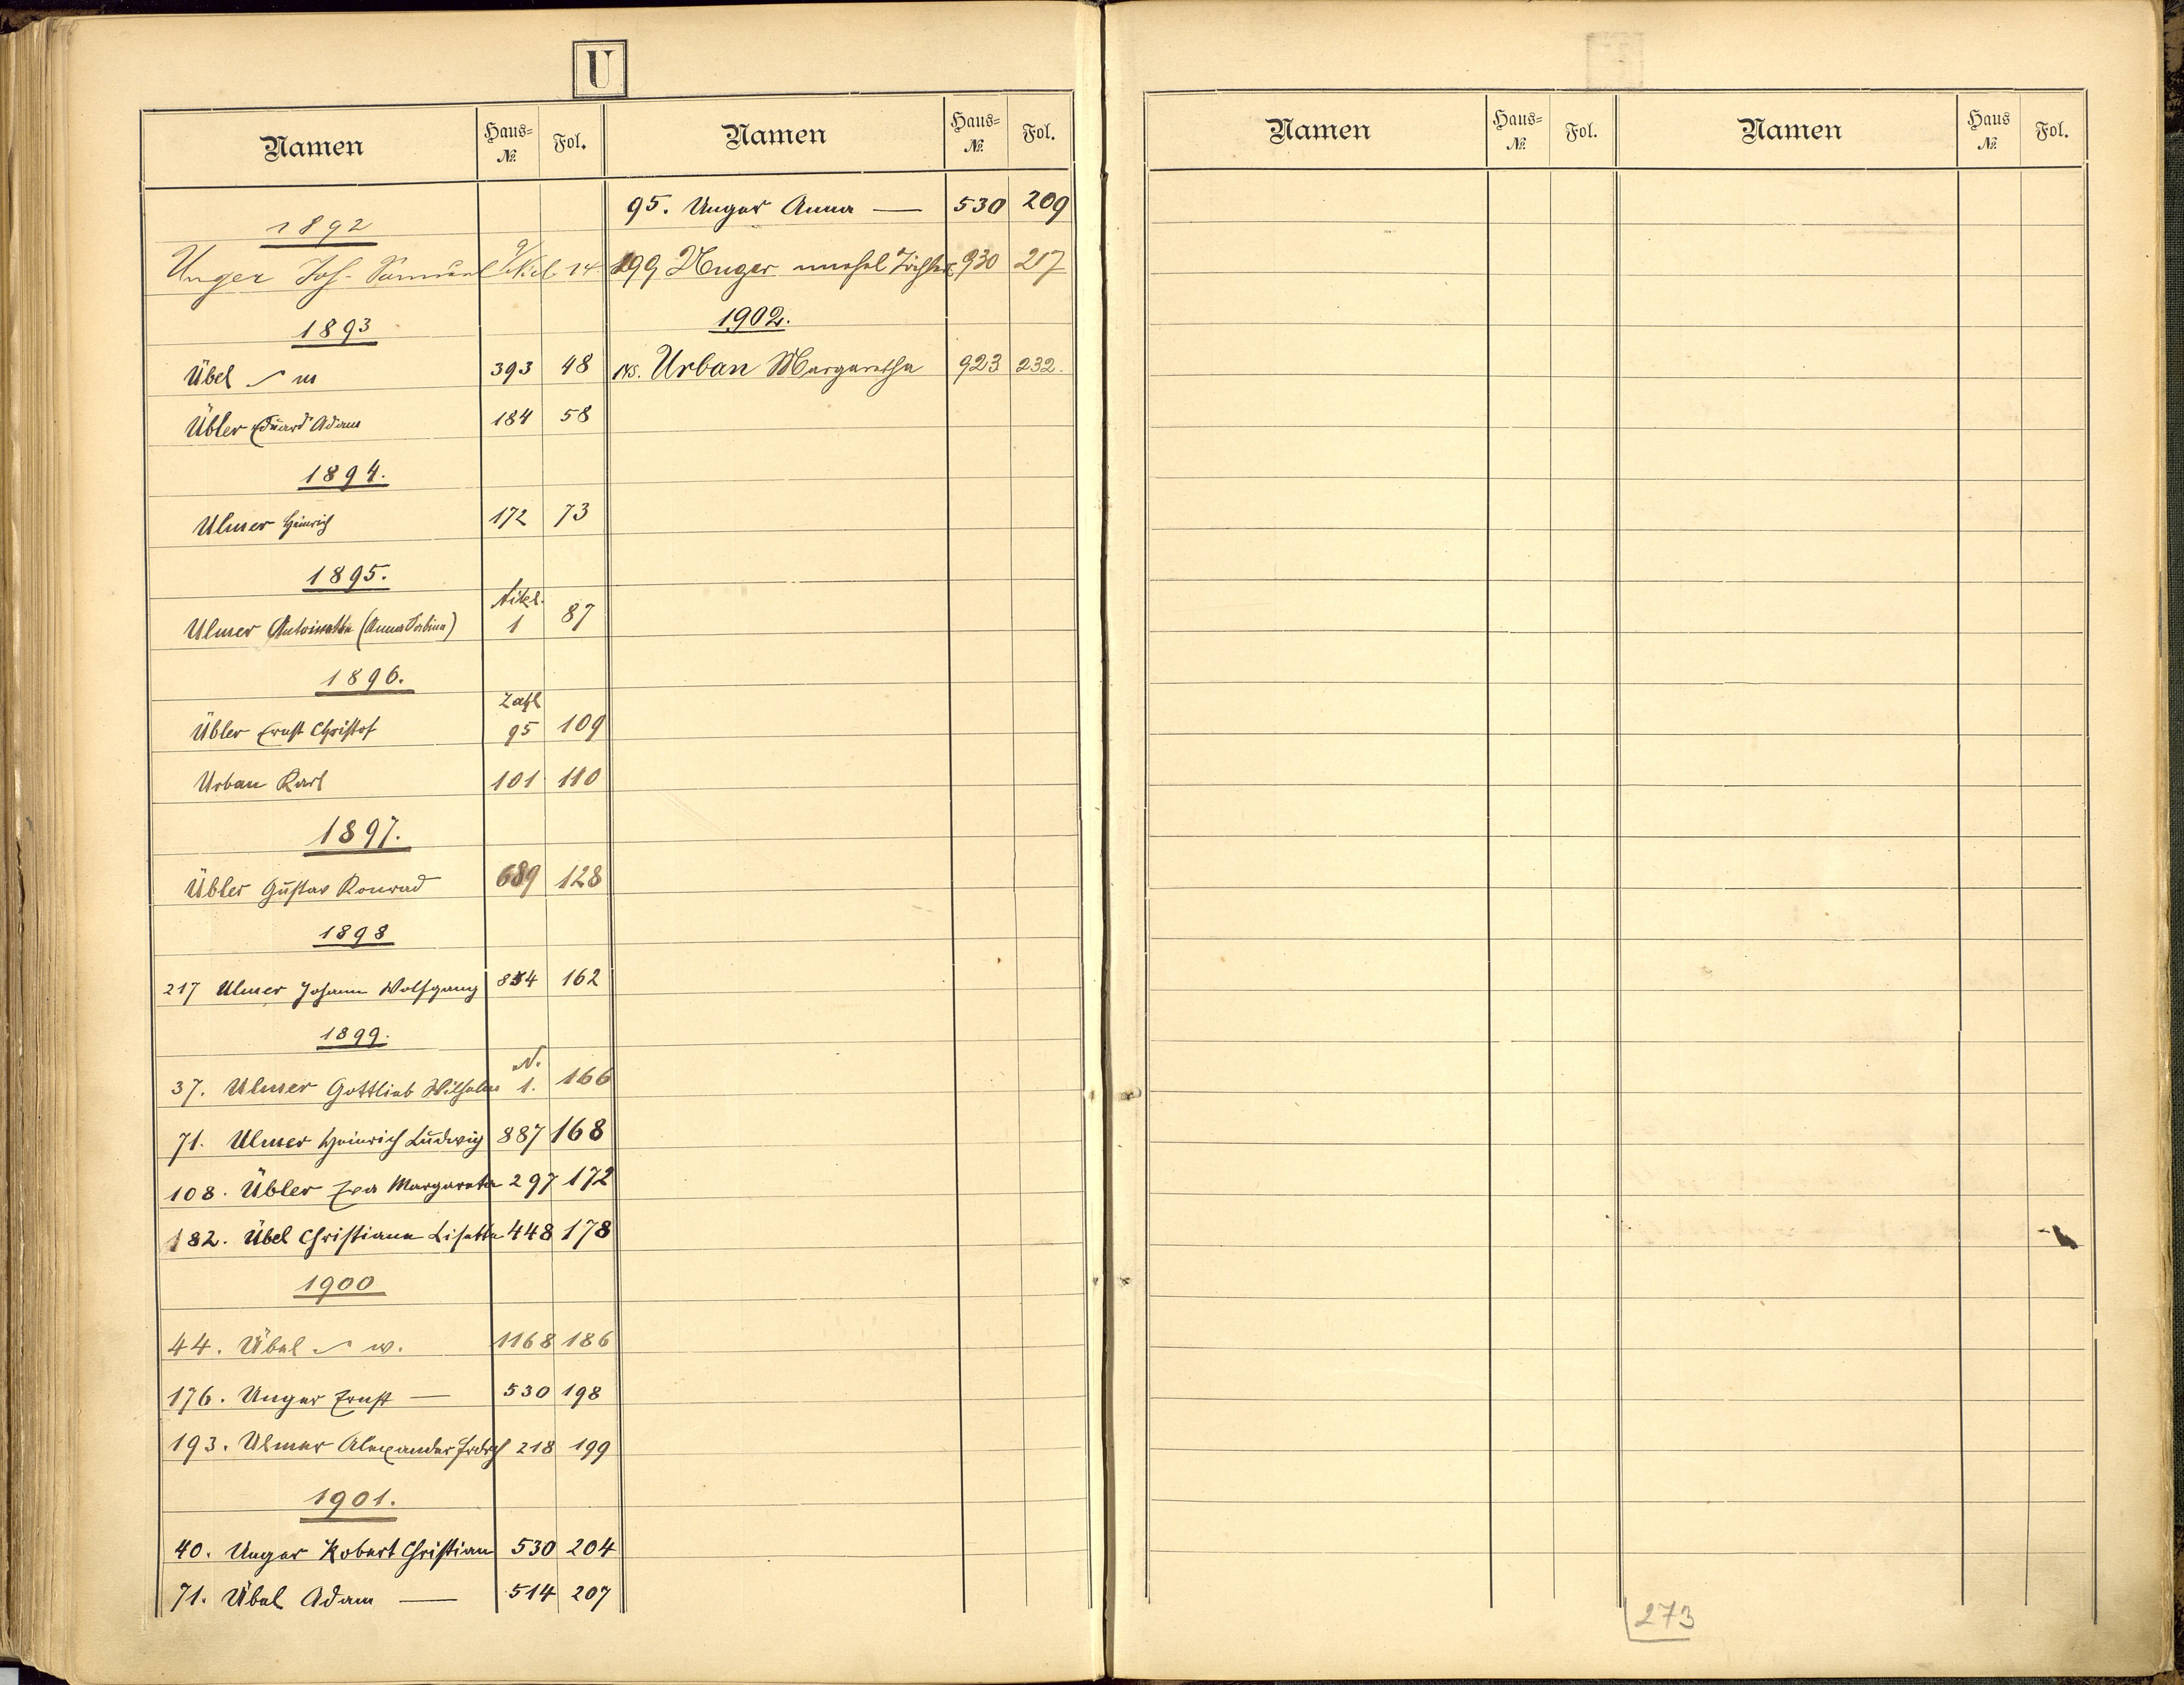 U
Namen Haus= No. Fol. Namen Haus= No. Fol.
1892
Unger Joh. Samuel Nicl. 14
1893
Übel m 393 48
Übler Eduard Adam 184 58
1894.
Ulmer Heinrich 172 73
1895.
Ulmer Antoinetta (Anna Sabina) Nikl. 1 87
1896.
Übler Ernst Christof Zahl 95 109
Urban Karl 101 110
1897.
Übler Gustav Konrad 689 128
1898
217 Ulmer Johann Wolfgang 854 162
1899.
37. Ulmer Gottlieb Wilhelm N. 1. 166
71. Ulmer Heinrich Ludwig 887 168
108. Übler Eva Margareta 297 172
182. Übel Christiana Lisetta 448 178
1900
44. Übel w. 1168 186
176. Unger Ernst — 530 198
193. Ulmer Alexander Frdrch 218 199
1901.
40. Unger Robert Christian 530 204
71. Übel Adam — 514 207
95. Unger Anna — 530 209
199 Unger unehel Töchter 930 217
1902.
Urban Margaretha 923 232.
Namen Haus= No. Fol. Namen Haus No. Fol.
273